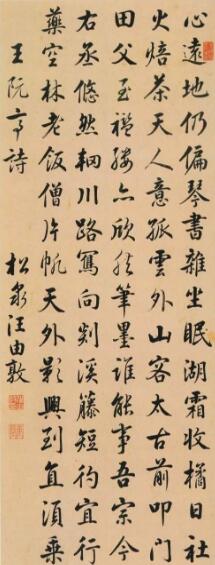 心遠地仍偏琴書雜坐眠湖霜收橘日社
火焙茶天人意孤雲外山客太古前叩門
田父至襤褸亦欣然筆墨誰能事吾宗今
右丞悠然輞川路寫向剡溪藤短彴宜行
藥空林老飯僧片帆天外影興到直須乘
王阮亭詩
松泉汪由敦